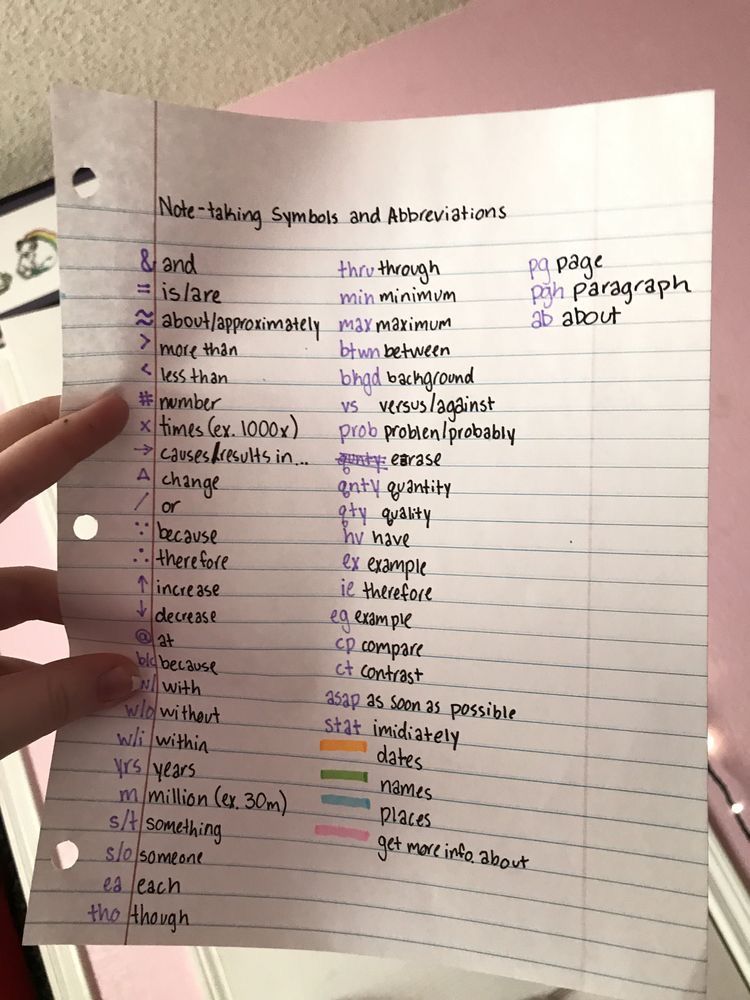 Note-taking Symbols and Abbreviations
& and
= is/are
≈ about/approximately
> more than
< less than
# number
x times (ex. 1000x)
→ causes/results in...
Δ change
/ or
∵ because
∴ therefore
↑ increase
↓ decrease
@ at
b/c because
w/ with
w/o without
w/i within
yrs years
m million (ex. 30m)
s/t something
s/o someone
ea each
tho though
thru through
min minimum
max maximum
btwn between
bkgd background
vs versus/against
prob problen/probably
qunty erase
qnty quantity
qty quality
hv have
ex example
ie therefore
eg example
cp compare
ct contrast
asap as soon as possible
stat imidiately
dates
names
places
get more info. about
pg page
pgh paragraph
ab about